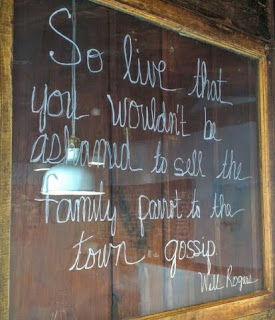 So live that
you wouldn't be
ashamed to sell the
family parrot to the
town gossip.
Will Rogers